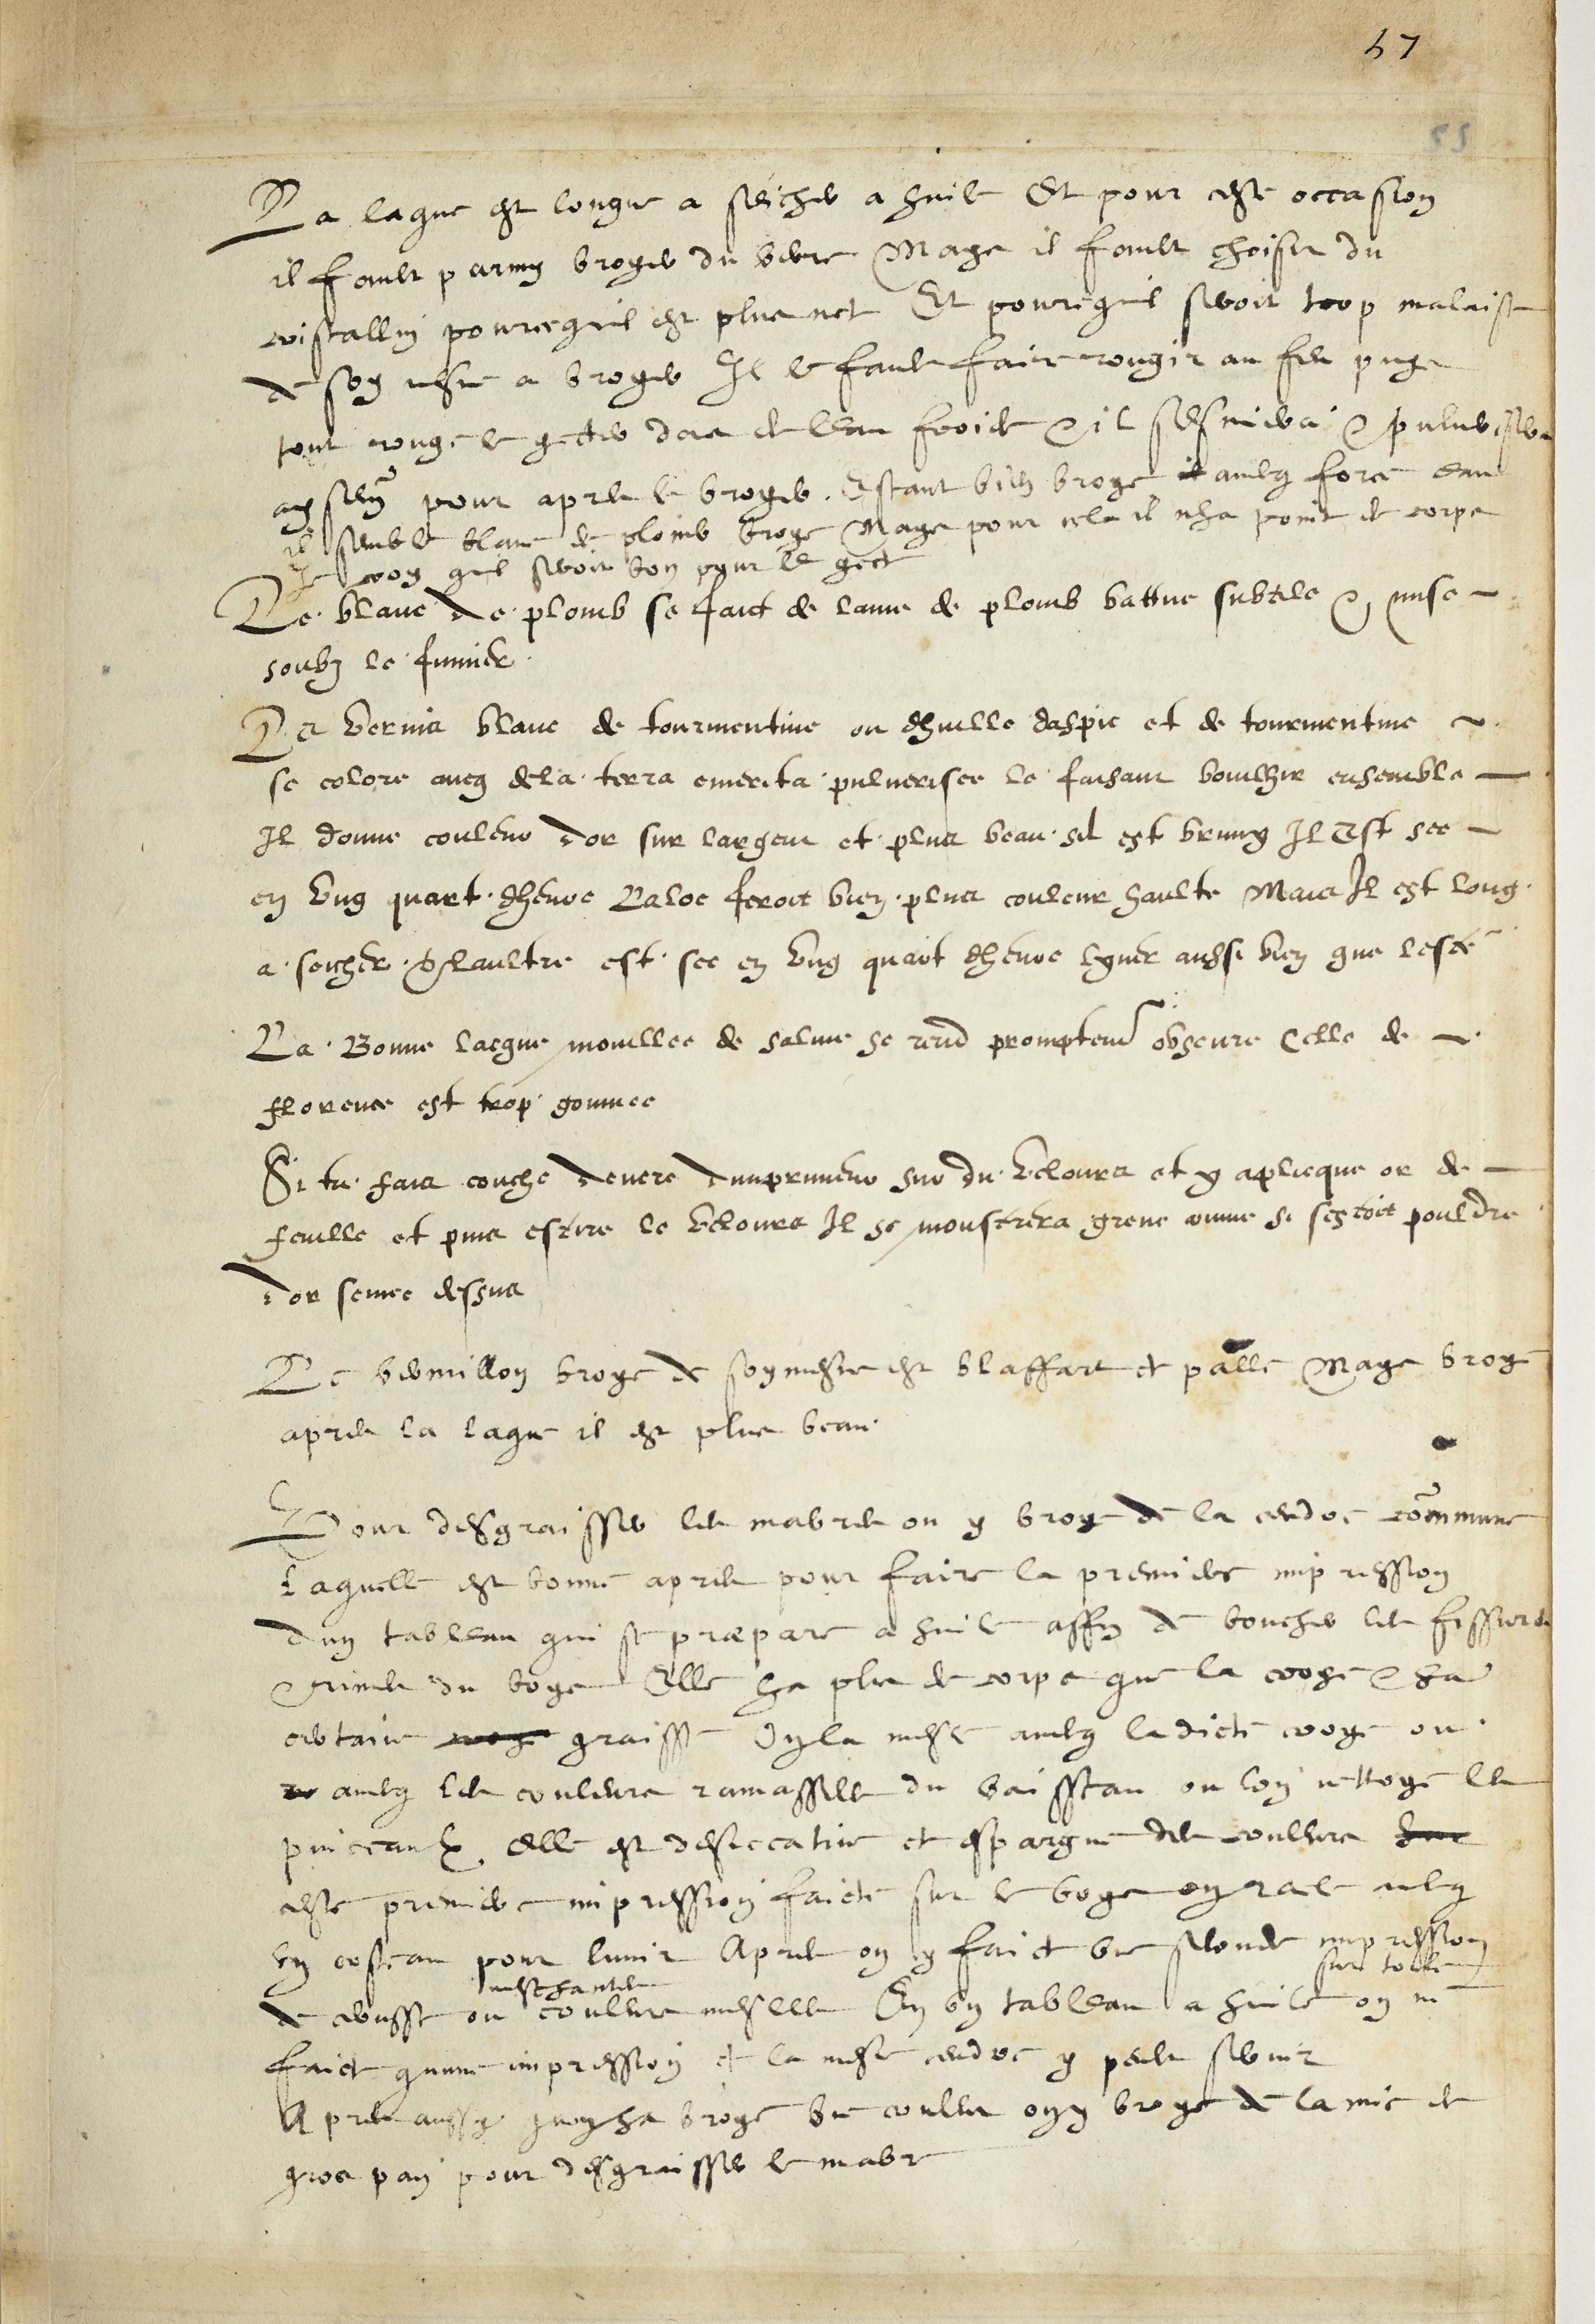 57
55
La laque est longue a seicher a huile Et pour ceste occasion
il fault parmy broyer du verre Mays il fault choisir du
cristallin pourcequil est plus net Et pourcequil seroit trop malaise
de soy mesme a broyer Il le fault faire rougir au feu puys
tout rouge le gecter dans de leau froide & il sesmiera & pulverisera
aysem{ent} pour apres le broyer. Estant bien broye avecq force eau
il semble blanc de plomb broye Mays pour cela il nha point de corps
Je croy quil seroit bon pour le gect
Le blanc de plomb se faict de lame de plomb battue subtile & mise
soubz le fumier
Le vernis blanc de tourmentine ou dhuille daspic et de tourmentine
se colore aueq de la terra emerita pulverisee le faisant bouillir ensemble
Il donne couleur dor sur largent et plus beau sil est bruny Il est sec
en ung quart dheure Laloe feroit bien plus couleur haulte Mais Il est long
a seicher & laultre est sec en ung quart dheure lyver aussi bien que lesté
La Bonne lacque mouillee de salive se rend promptem{ent} obscure Celle de
florence est trop gommee
Si tu fais couche dencre dimprimeur sur du velours et y aplicque or de
feuille et puis estire le velours Il se monstrera grene comme si cestoit pouldre
dor semee dessus
Le vermillon broye de soy mesme est blaffart et palle Mays broye
apres la laque il est plus beau
Pour desgraisser les mabres on y broye de la cendre commune
Laquelle est bonne apres pour faire la premiere impression
dun tableau qui se præpare a huile affin de boucher les fissures
& fentes du boys Elle ha plus de corps que la croye & ha
certaine graisse On la mesle avecq ladicte croye ou
avecq les couleurs ramassees du vaisseau ou lon nettoye les
pinceaulx Elle est desiccative et espargne des couleurs
ceste premiere impression faicte sur le boys on racle avecq
un cousteau pour lunir Apres on y faict une seconde impression
meschantes
sur toile
de ceruse ou couleurs meslees En un tableau a huile on ne
faict quune impression & la mesme cendre y peult servir
Apres aussy quon ha broye une couleur on y broye de la mie de
gros pain pour desgraisser le mabre